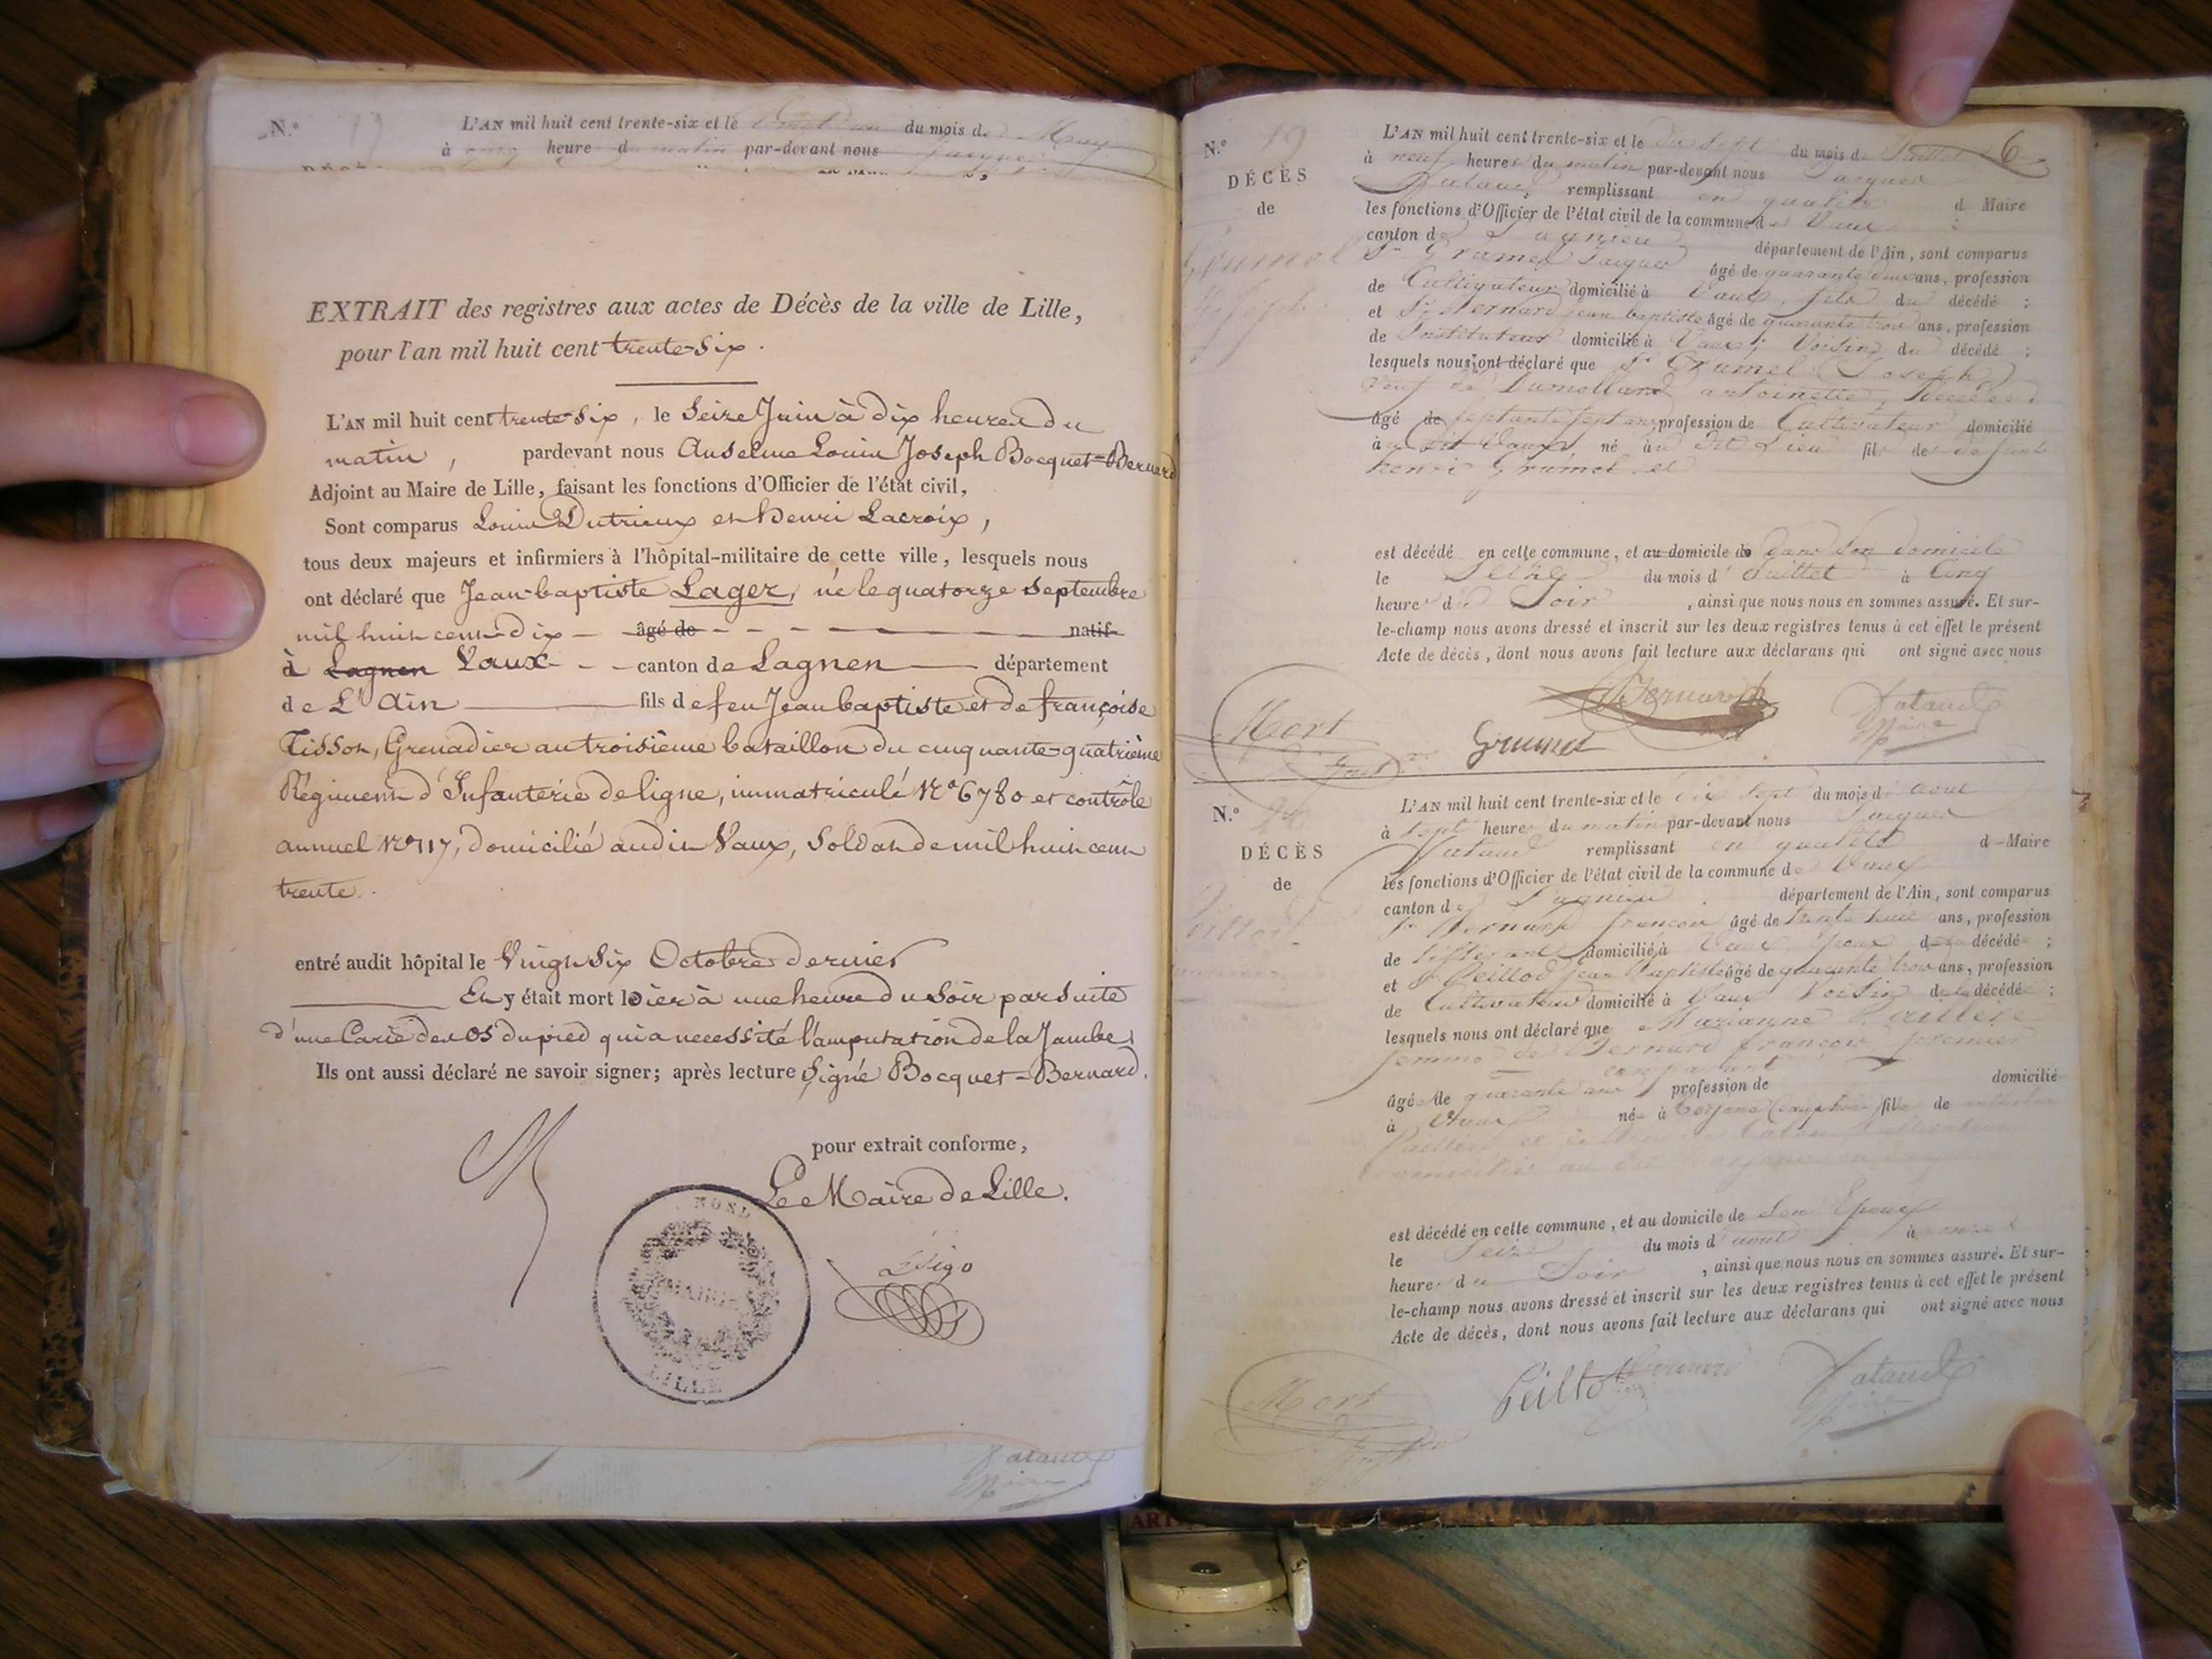 N.° L'AN mil huit cent trente-six et le du mois de May
à onze heure du matin par-devant nous Jacques
EXTRAIT des registres aux actes de Décès de la ville de Lille,
pour l'an mil huit cent trente-Six.
L'AN mil huit cent trente-Six, le Seize Juin à dix heures du
matin, pardevant nous Anselme Louis Joseph Bocquet-Bernard
Adjoint au Maire de Lille, faisant les fonctions d'Officier de l'état civil,
Sont comparus Louis Dutrieux et henri Lacroix,
tous deux majeurs et infirmiers à l'hôpital-militaire de cette ville, lesquels nous
ont déclaré que Jean-baptiste Lager, né le quatorze Septembre
mil huit cent dix — âgé de natif
à Lagnen Vaux - - canton de Lagnen — département
de L'Ain — fils de feu Jean baptiste et de françoise
Tisson, Grenadier au troisième bataillon du cinquante-quatrième
Régiment d'Infanterie de ligne, immatriculé N° 6780 et contrôle
annuel N° 117, domicilié audit Vaux, Soldat de mil huit cent
trente.
entré audit hôpital le Vingt Six Octobre dernier
Et y était mort hier à une heure du Soir par Suite
d'une Carie des os du pied qui a necessité l'amputation de la Jambe
Ils ont aussi déclaré ne savoir signer; après lecture Signé Bocquet-Bernard.
pour extrait conforme,
Le Maire de Lille.
NORD
MAIRIE
LILLE
Bigo
Ratand
Maire
N.° 19
DÉCÈS
de
Grumel
Joseph
L'AN mil huit cent trente-six et le dix Sept du mois de Juillet 6
à neuf heures du matin par-devant nous Jacques
remplissant en qualité d Maire
les fonctions d'Officier de l'état civil de la commune de Vaux
canton de Lagnieu département de l'Ain, sont comparus
Sr Grumel Jacques âgé de quarante deux ans, profession
de Cultivateur domicilié à Vaux, fils du décédé ;
et Sr Bernard jean baptiste âgé de quarante trois ans, profession
de Instituteur domicilié à Vaux, Voisin du décédé ;
lesquels nous ont déclaré que Sr Grumel (Joseph)
veuf de Dumollard antoinette, decédée
âgé de septante sept ans, profession de Cultivateur domicilié
à dit Vaux né au dit Lieu fils de defunt
henri Grumel et
est décédé en cette commune, et au domicile de dans Son domicile
le Seize du mois d Juillet à Cinq
heures du Soir, ainsi que nous nous en sommes assuré. Et sur-
le-champ nous avons dressé et inscrit sur les deux registres tenus à cet effet le présent
Acte de décès, dont nous avons fait lecture aux déclarans qui ont signé avec nous
Mort
Grumel
Bernard
Maire
N.° 20
DÉCÈS
de
L'AN mil huit cent trente-six et le dix Sept du mois d aout
à Sept heures du matin par-devant nous Jacques
remplissant en qualité d Maire
les fonctions d'Officier de l'état civil de la commune de Vaux
canton de Lagnieu département de l'Ain, sont comparus
Sr Bernard francois âgé de trente huit ans, profession
de domicilié à Vaux, Epoux de la décédée ;
et Sr Peillod jean Baptiste âgé de quarante trois ans, profession
de Cultivateur domicilié à Vaux Voisin de la décédée ;
lesquels nous ont déclaré que Marianne
femme de Bernard francois premier
comparant
âgée de quarante ans profession de domicilié
à Vaux née à fille de
est décédé en cette commune, et au domicile de Son Epoux
le Seize du mois d aout à onze
heures du Soir, ainsi que nous nous en sommes assuré. Et sur-
le-champ nous avons dressé et inscrit sur les deux registres tenus à cet effet le présent
Acte de décès, dont nous avons fait lecture aux déclarans qui ont signé avec nous
Mort
Peillod Bernard